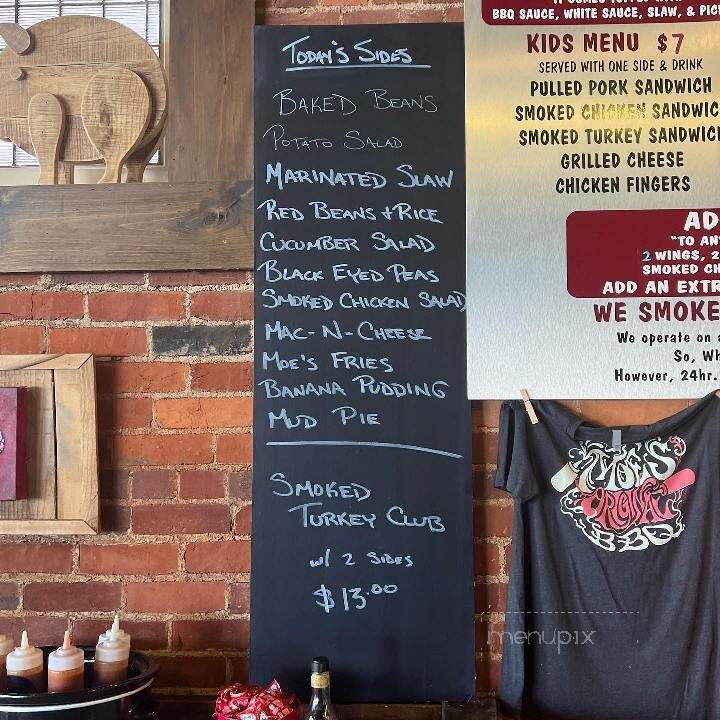 Today's Sides
Baked Beans
Potato Salad
Marinated Slaw
Red Beans + Rice
Cucumber Salad
Black Eyed Peas
Smoked Chicken Salad
Mac-N-Cheese
Moe's Fries
Banana Pudding
Mud Pie
Smoked
Turkey Club
w/ 2 Sides
$13.00
BBQ SAUCE, WHITE SAUCE, SLAW, &
KIDS MENU $7
SERVED WITH ONE SIDE & DRINK
PULLED PORK SANDWICH
SMOKED CHICKEN SANDWIC
SMOKED TURKEY SANDWICH
GRILLED CHEESE
CHICKEN FINGERS
AD
"TO AN
2 WINGS, 2
SMOKED CH
ADD AN EXTR
WE SMOKE
We operate on a
So, Wh
However, 24hr.
MOE'S
ORIGINAL
BBQ
menupix